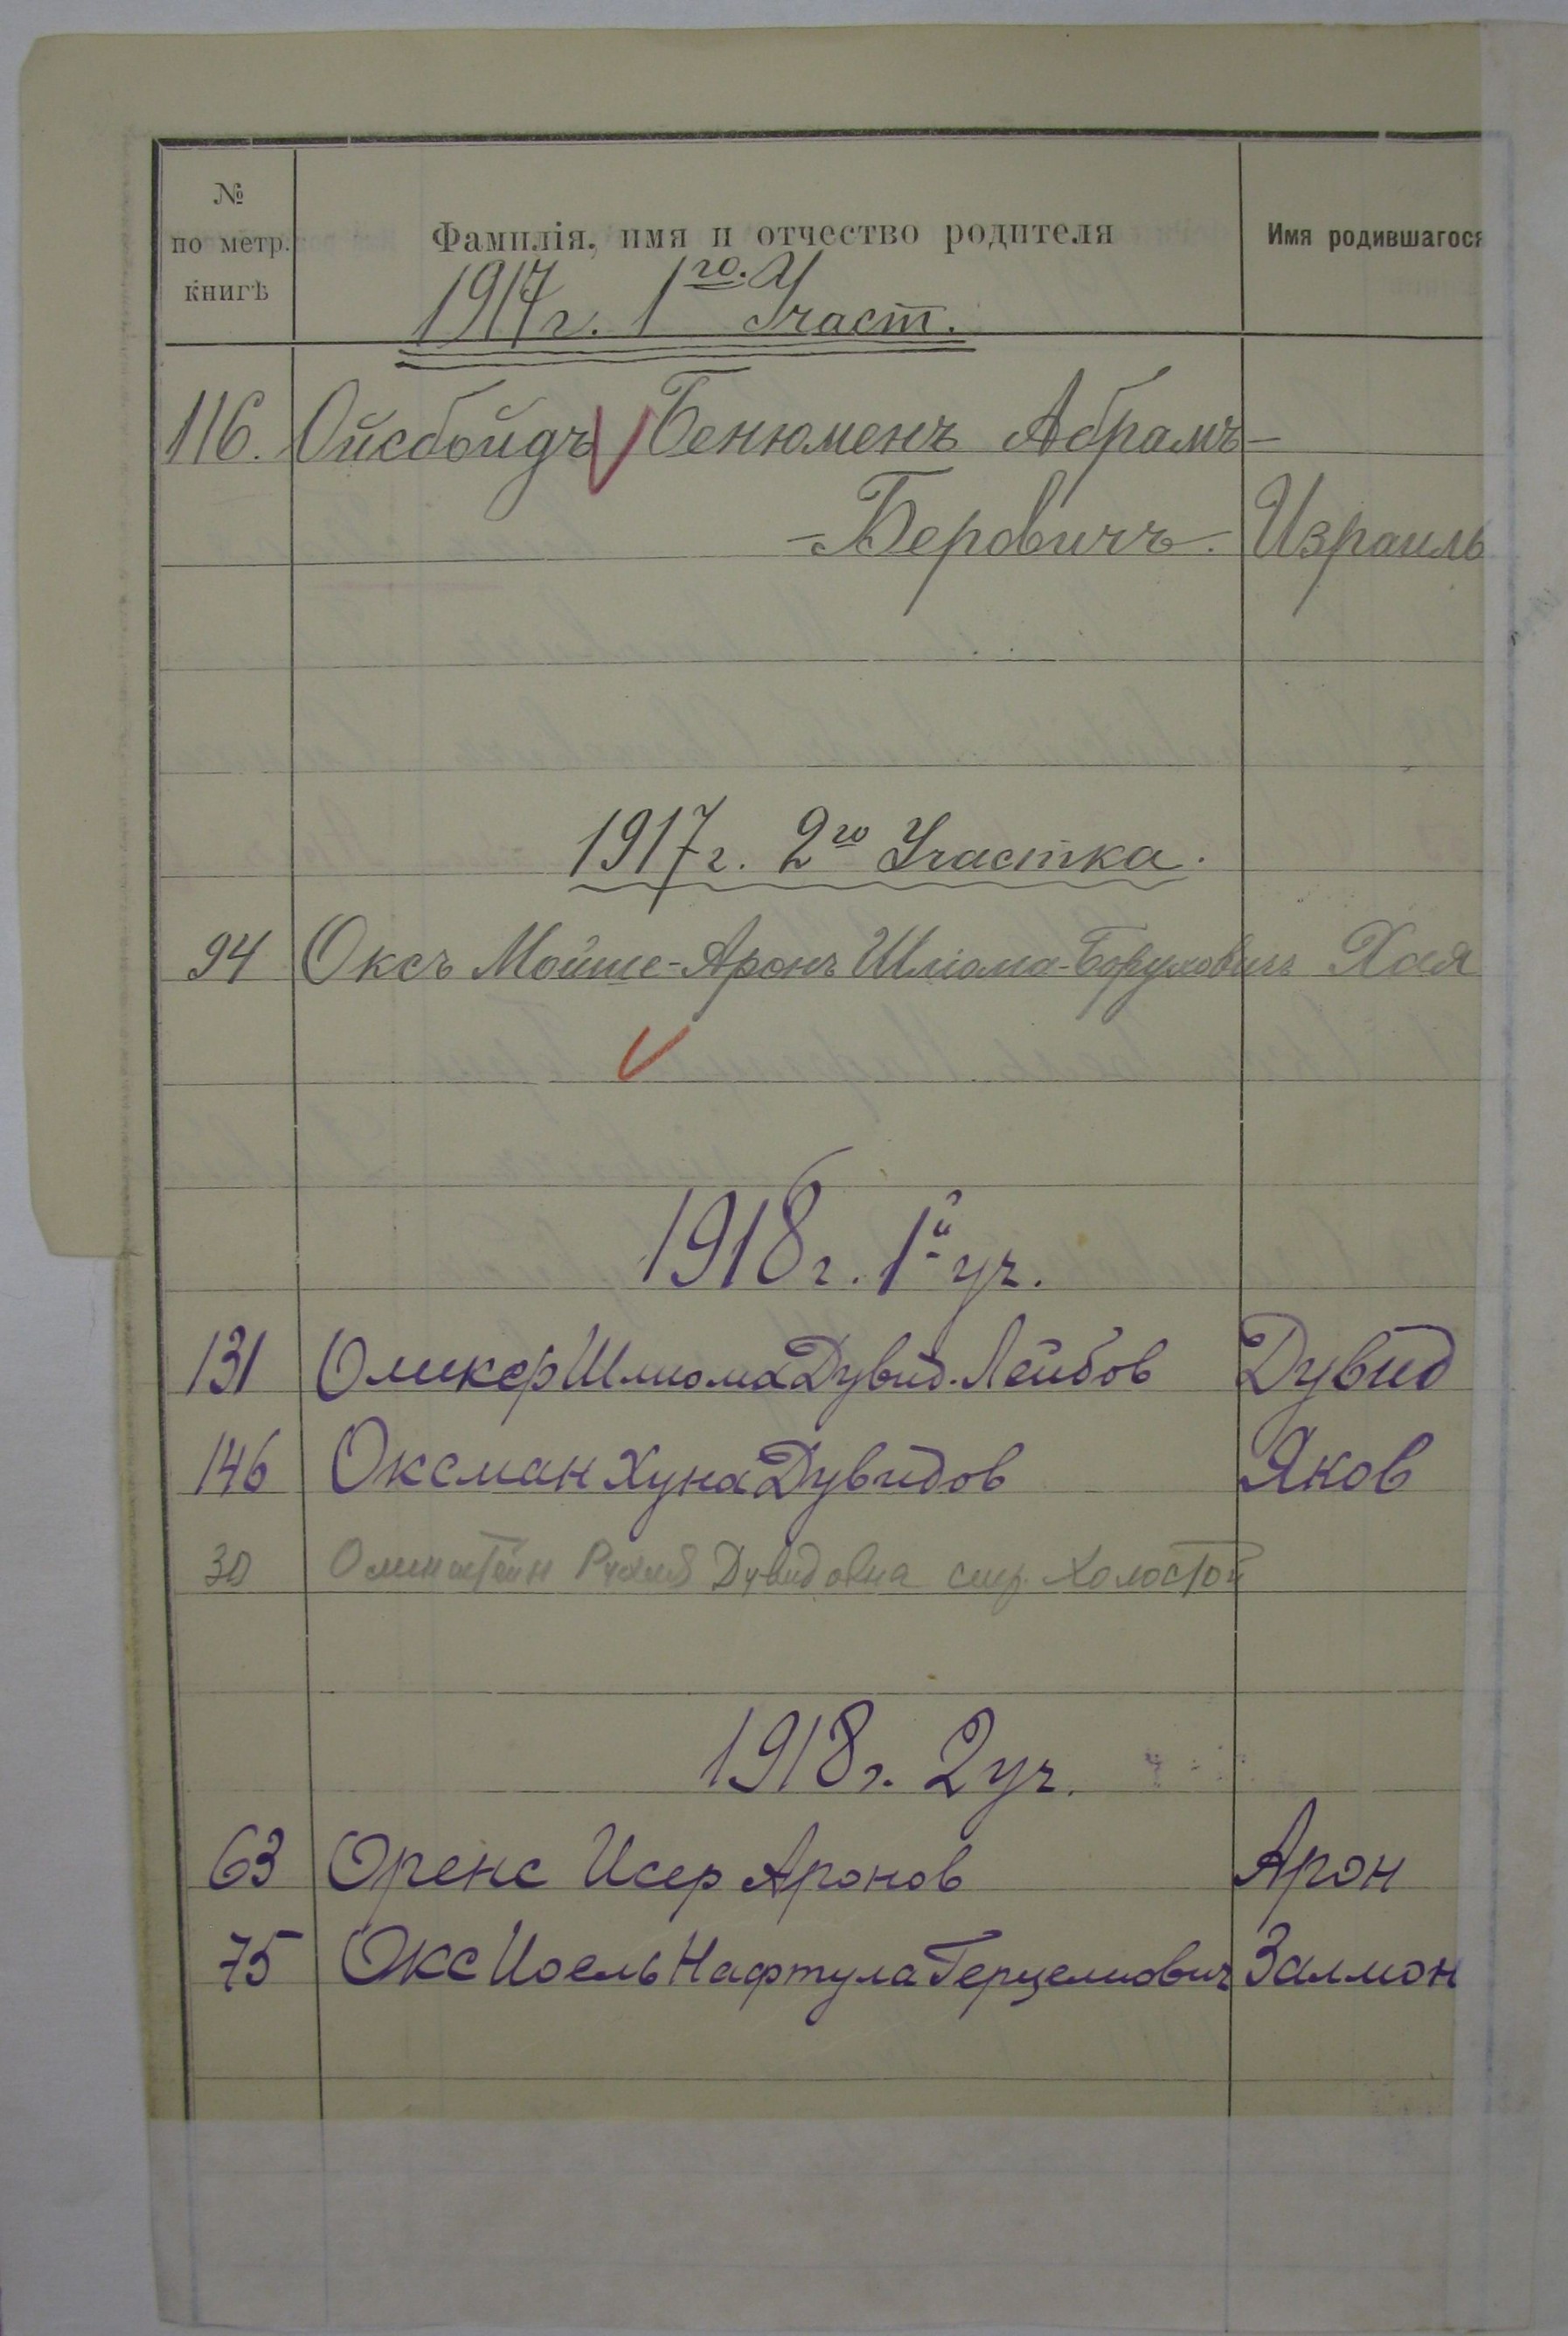 №
по метр.
книгѣ
Фамилія, имя и отчество родителя
Имя родившагося
1917 г. 1го. Участ.
116. Ойсбойдъ Бенюменъ Абрамъ-
-Беровичъ. Израиль
1917 г. 2го Участка.
94 Оксъ Мойше-Аронъ Шліома-Борухович Хая
1918 г. 1й уч.
131 Оликер Шлиома Дувид. Лейбов Дувид
146 Оксман Хуна Дувидов Яков
30 Дувидовна Холостой
1918 г. 2 уч.
63 Оренс Исер Аронов Арон
75 Окс Иоель Нафтула Герцелиович Залмон